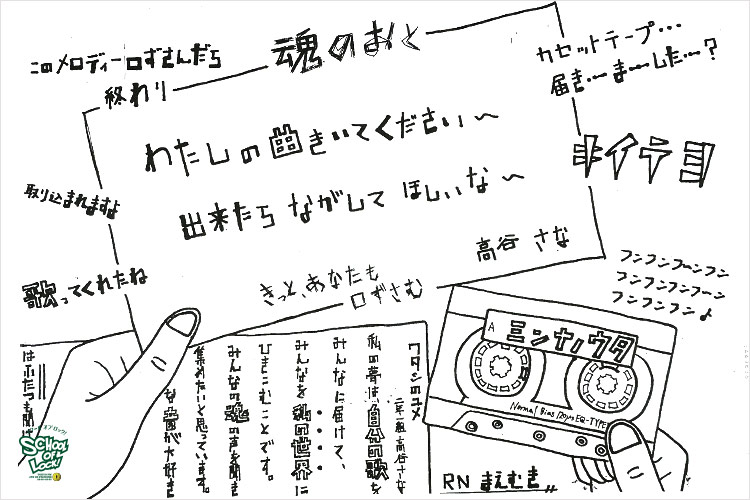 魂のおと
このメロディー口ずさんだら
終わり
カセットテープ…
届き…ま…した…?
わたしの曲きいてください〜
キイテヨ
出来たら ながしてほしいな〜
取り込まれますよ
高谷 さな
歌ってくれたね
きっと、あなたも
口ずさむ
フンフンフーンフン
フンフンフンフーン
フンフンフン♪
ワタシのユメ
二年一組 高谷さな
私の夢は自分の歌を
みんなに届けて、
みんなを私の世界に
ひきこむことです。
みんなの魂の声を聞き
集めたいと思っています。
が大好き
A ミンナノウタ
Normal Bias EQ-TYPE
RN まえむき
SCHOOL OF LOCK!